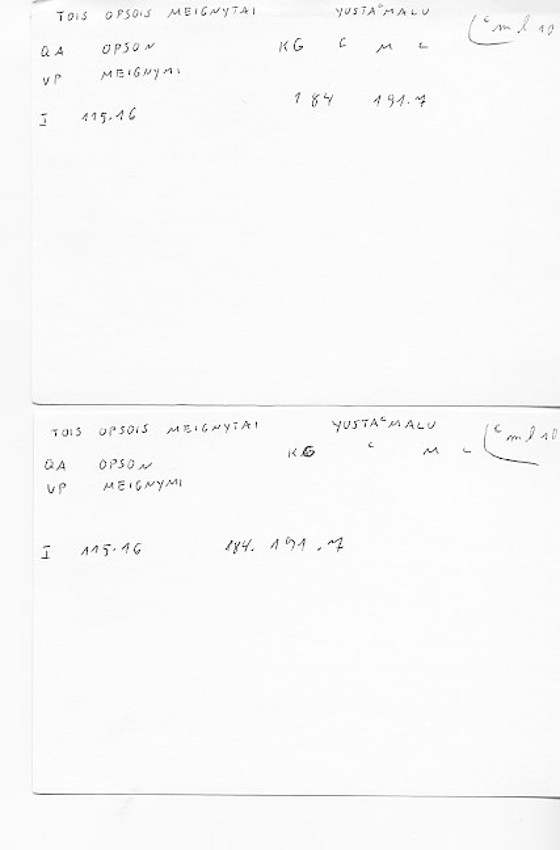 TOIS OPSOIS MEIGNYTAI YUSTAʿMALU (ʿml 10
QA OPSON KG ʿ M L
VP MEIGNYMI
I 115.16 184 191.7
TOIS OPSOIS MEIGNYTAI YUSTAʿMALU (ʿml 10
QA OPSON KG ʿ M L
VP MEIGNYMI
I 115.16 184. 191.7